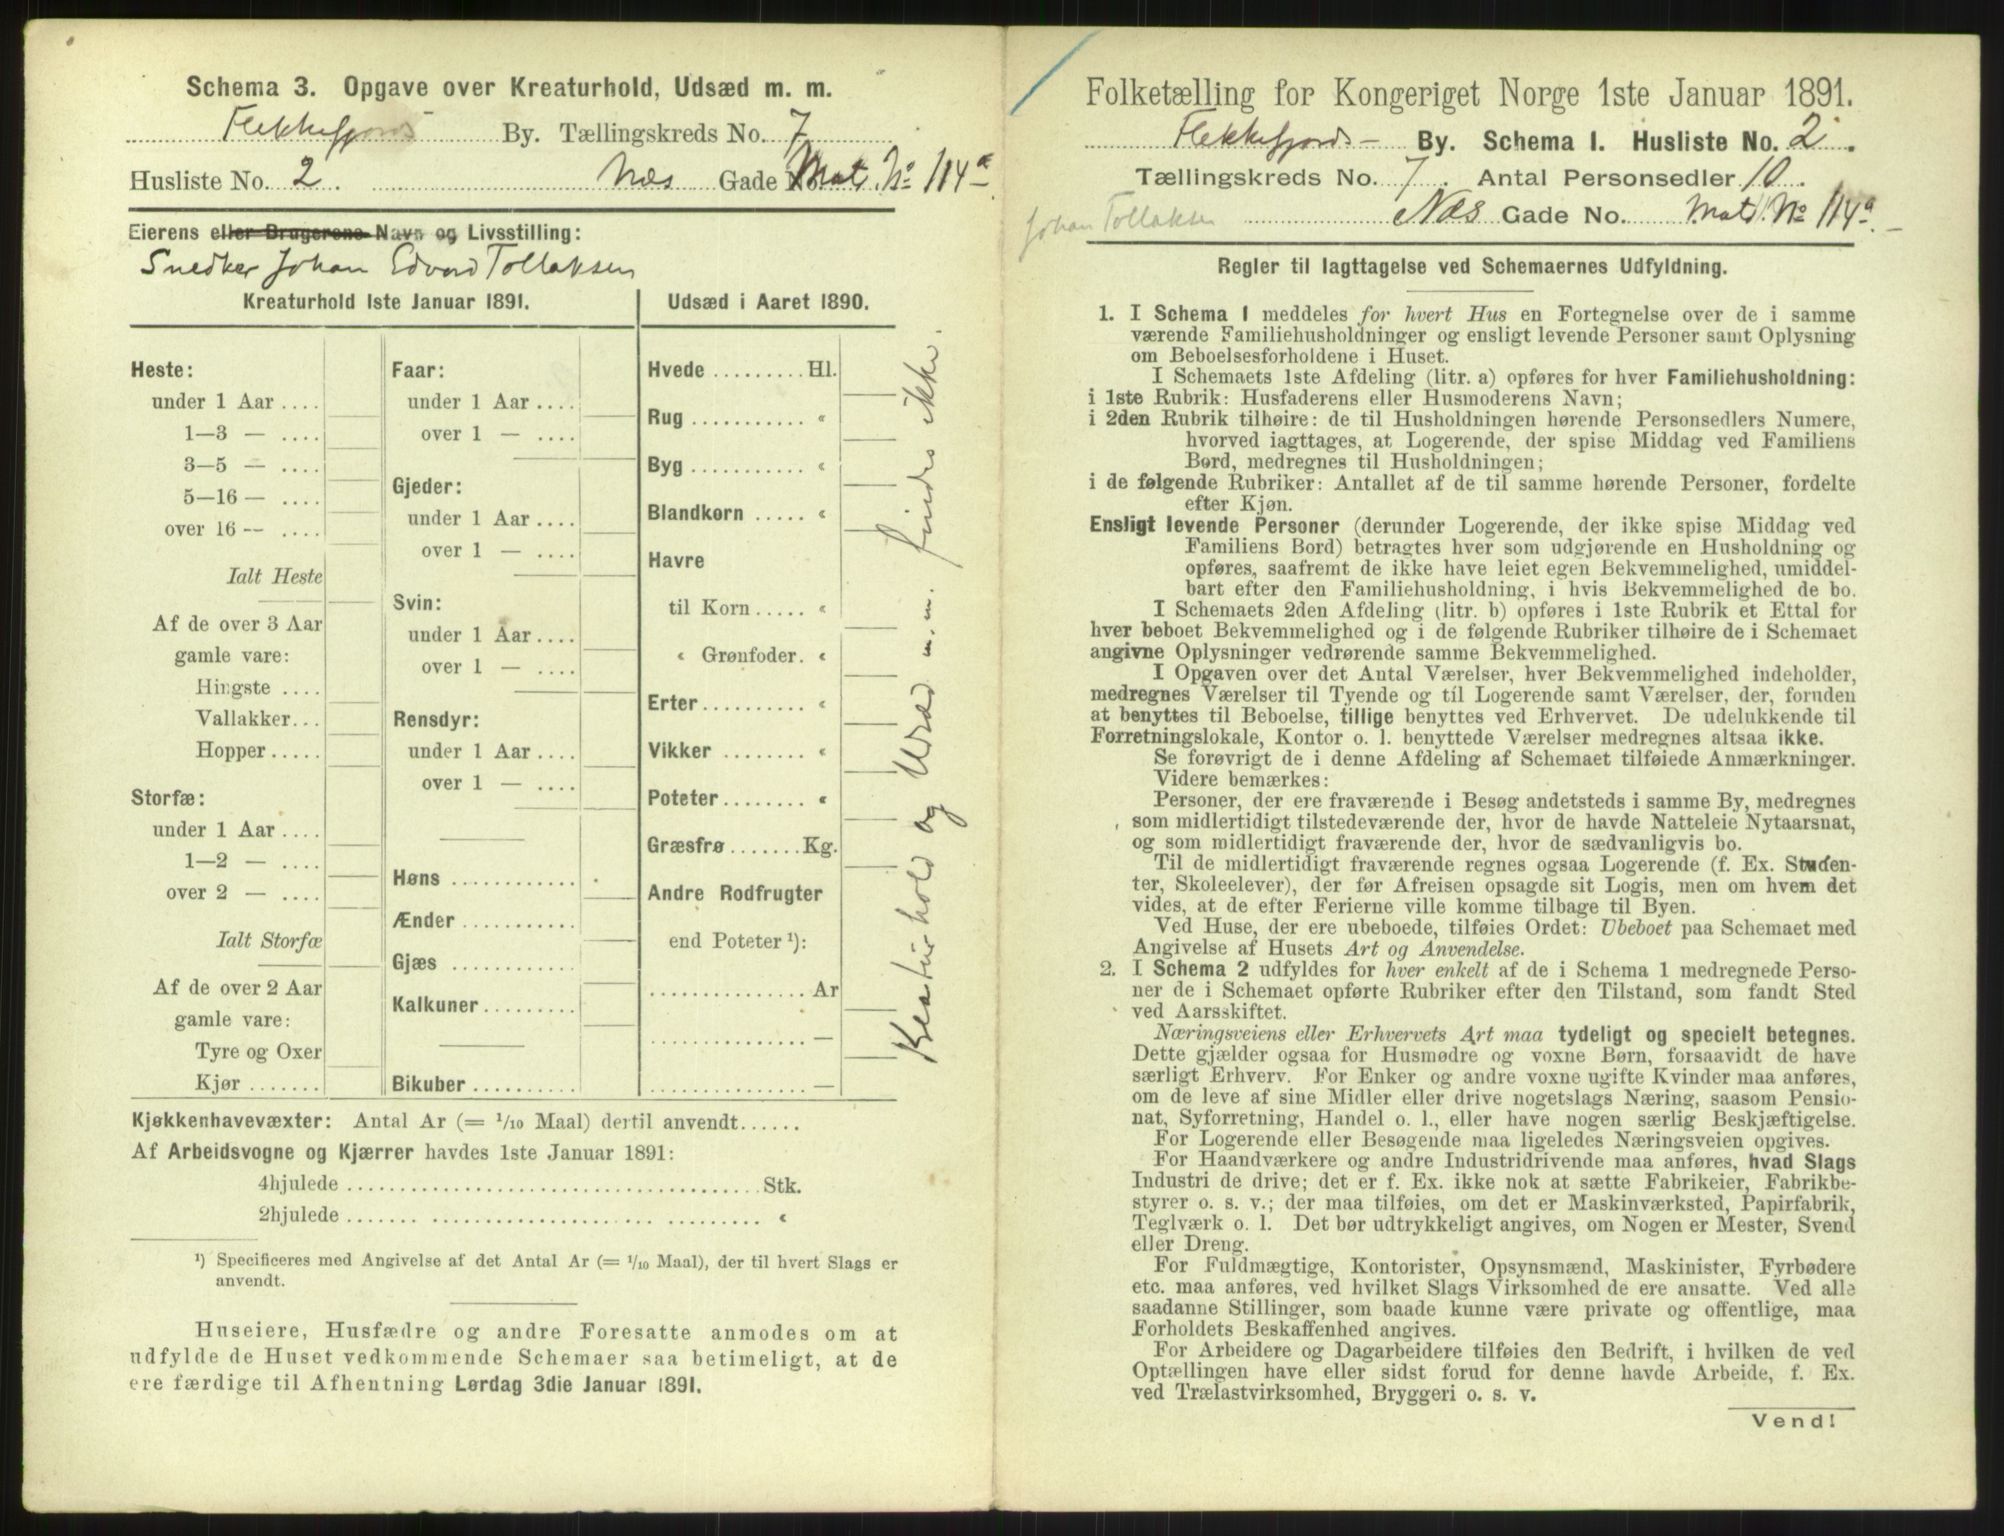 Schema 3. Opgave over Kreaturhold, Udsæd m. m.
Flekkefjords By. Tællingskreds No. 7
Husliste No. 2. Næs Gade No. Mat. No 114a
Eierens eller Brugerens Navn og Livsstilling:
Snedker Johan Edvard Tollaksen
Kreaturhold 1ste Januar 1891.
Heste:
under 1 Aar ....
1—3 — ....
3—5 — ....
5—16 — ....
over 16 — ....
Ialt Heste
Af de over 3 Aar
gamle vare:
Hingste ....
Vallakker...
Hopper .....
Storfæ:
under 1 Aar ....
1—2 — ....
over 2 — ....
Ialt Storfæ
Af de over 2 Aar
gamle vare:
Tyre og Oxer
Kjør .......
Faar:
under 1 Aar ....
over 1 — ....
Gjeder:
under 1 Aar ....
over 1 — ....
Svin:
under 1 Aar ....
over 1 — ....
Rensdyr:
under 1 Aar ....
over 1 — ....
Høns ............
Ænder ...........
Gjæs ............
Kalkuner ........
Bikuber ..........
Udsæd i Aaret 1890.
Hvede ......... Hl.
Rug ........... «
Byg ........... «
Blandkorn ..... «
Havre
til Korn ..... «
« Grønfoder. «
Erter.......... «
Vikker ........ «
Poteter ........ «
Græsfrø ....... Kg.
Andre Rodfrugter
end Poteter ¹):
............... Ar
............... —
............... —
Kreaturhold og Udsæd m.m. findes ikke.
Kjøkkenhavevæxter: Antal Ar (= 1/10 Maal) dertil anvendt......
Af Arbeidsvogne og Kjærrer havdes 1ste Januar 1891:
4hjulede ....................................... Stk.
2hjulede ....................................... «
¹) Specificeres med Angivelse af det Antal Ar (= 1/10 Maal), der til hvert Slags er
anvendt.
Huseiere, Husfædre og andre Foresatte anmodes om at
udfylde de Huset vedkommende Schemaer saa betimeligt, at de
ere færdige til Afhentning Lørdag 3die Januar 1891.
Folketælling for Kongeriget Norge 1ste Januar 1891.
Flekkefjords — By. Schema 1. Husliste No. 2.
Tællingskreds No. 7. Antal Personsedler 10.
Johan Tollaksen Næs Gade No. Mat. No 114a.
Regler til Iagttagelse ved Schemaernes Udfyldning.
1. I Schema 1 meddeles for hvert Hus en Fortegnelse over de i samme
værende Familiehusholdninger og ensligt levende Personer samt Oplysning
om Beboelsesforholdene i Huset.
I Schemaets 1ste Afdeling (litr. a) opføres for hver Familiehusholdning:
i 1ste Rubrik: Husfaderens eller Husmoderens Navn;
i 2den Rubrik tilhøire: de til Husholdningen hørende Personsedlers Numere,
hvorved iagttages, at Logerende, der spise Middag ved Familiens
Bord, medregnes til Husholdningen;
i de følgende Rubriker: Antallet af de til samme hørende Personer, fordelte
efter Kjøn.
Ensligt levende Personer (derunder Logerende, der ikke spise Middag ved
Familiens Bord) betragtes hver som udgjørende en Husholdning og
opføres, saafremt de ikke have leiet egen Bekvemmelighed, umiddel-
bart efter den Familiehusholdning, i hvis Bekvemmelighed de bo.
I Schemaets 2den Afdeling (litr. b) opføres i 1ste Rubrik et Ettal for
hver beboet Bekvemmelighed og i de følgende Rubriker tilhøire de i Schemaet
angivne Oplysninger vedrørende samme Bekvemmelighed.
I Opgaven over det Antal Værelser, hver Bekvemmelighed indeholder,
medregnes Værelser til Tyende og til Logerende samt Værelser, der, foruden
at benyttes til Beboelse, tillige benyttes ved Erhvervet. De udelukkende til
Forretningslokale, Kontor o. l. benyttede Værelser medregnes altsaa ikke.
Se forøvrigt de i denne Afdeling af Schemaet tilføiede Anmærkninger.
Videre bemærkes:
Personer, der ere fraværende i Besøg andetsteds i samme By, medregnes
som midlertidigt tilstedeværende der, hvor de havde Natteleie Nytaarsnat,
og som midlertidigt fraværende der, hvor de sædvanligvis bo.
Til de midlertidigt fraværende regnes ogsaa Logerende (f. Ex. Studen-
ter, Skoleelever), der før Afreisen opsagde sit Logis, men om hvem det
vides, at de efter Ferierne ville komme tilbage til Byen.
Ved Huse, der ere ubeboede, tilføies Ordet: Ubeboet paa Schemaet med
Angivelse af Husets Art og Anvendelse.
2. I Schema 2 udfyldes for hver enkelt af de i Schema 1 medregnede Perso-
ner de i Schemaet opførte Rubriker efter den Tilstand, som fandt Sted
ved Aarsskiftet.
Næringsveiens eller Erhvervets Art maa tydeligt og specielt betegnes.
Dette gjælder ogsaa for Husmødre og voxne Børn, forsaavidt de have
særligt Erhverv. For Enker og andre voxne ugifte Kvinder maa anføres,
om de leve af sine Midler eller drive nogetslags Næring, saasom Pensio-
nat, Syforretning, Handel o. l., eller have nogen særlig Beskjæftigelse.
For Logerende eller Besøgende maa ligeledes Næringsveien opgives.
For Haandværkere og andre Industridrivende maa anføres, hvad Slags
Industri de drive; det er f. Ex. ikke nok at sætte Fabrikeier, Fabrikbe-
styrer o. s. v.; der maa tilføies, om det er Maskinværksted, Papirfabrik,
Teglværk o. l. Det bør udtrykkeligt angives, om Nogen er Mester, Svend
eller Dreng.
For Fuldmægtige, Kontorister, Opsynsmænd, Maskinister, Fyrbødere
etc. maa anføres, ved hvilket Slags Virksomhed de ere ansatte. Ved alle
saadanne Stillinger, som baade kunne være private og offentlige, maa
Forholdets Beskaffenhed angives.
For Arbeidere og Dagarbeidere tilføies den Bedrift, i hvilken de ved
Optællingen have eller sidst forud for denne havde Arbeide, f. Ex.
ved Trælastvirksomhed, Bryggeri o. s. v.
Vend!